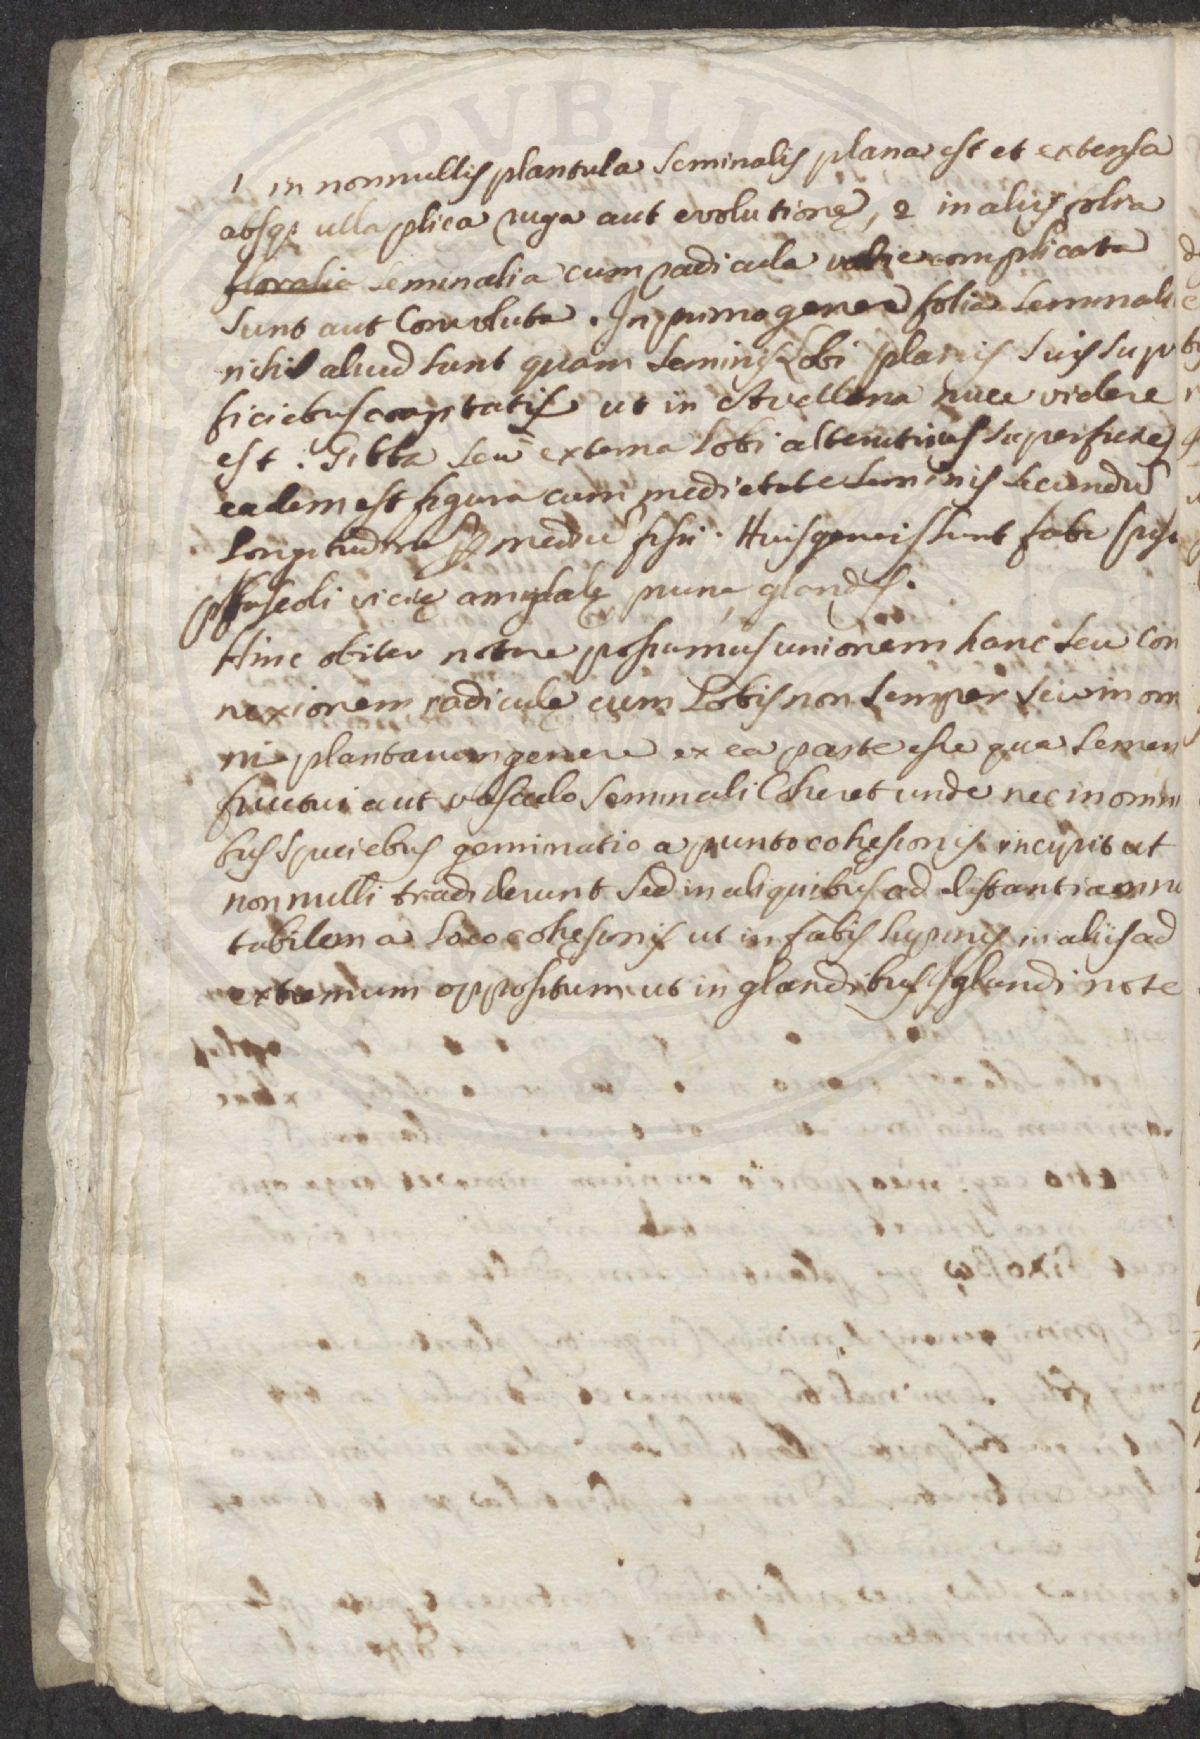 1 in nonnullis plantula seminalis plana est et extensa
absq; ulla plica ruga aut evolutionę, 2 in alijs folia
floralia seminalia cum radicula varie complicata
sunt aut Convoluta. In primo genere folia seminali
nichil aliud sunt quam seminis Lobi planis suis supr
ficiebus coaptatis ut in Avellana nuce videre
est. Gibba seu externa Lobi alterutrius superficies
eadem est figura cum medietate seminis secundū
Longitudine p mediū fissi. Huis generis sunt fabe pisa
phaseoli vicię amigdalę prune glandes.
Hinc obiter notare possumus unionem hanc seu Con
nexionem radiculę cum Lobis non semper seu in om
ni plantarum genere ex ea parte esse qua semen
fructui aut vasculo seminali Coheret unde nec in omni
bus speciebus geminatio a punto cohęsionis incipit ut
nonnulli tradiderunt sed in aliquibus ad distantiam no
tabilem a Loco cohęsionis ut in fabis lupinis in aliis ad
extremum oppositum ut in glandibus glandi note
PVBLIC